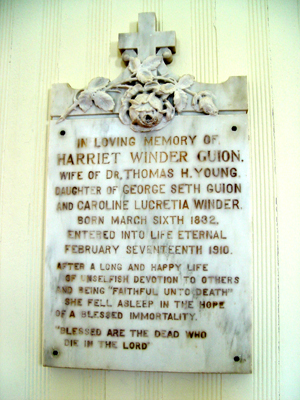 IN LOVING MEMORY OF
HARRIET WINDER GUION.
WIFE OF DR. THOMAS H. YOUNG.
DAUGHTER OF GEORGE SETH GUION
AND CAROLINE LUCRETIA WINDER.
BORN MARCH SIXTH 1832.
ENTERED INTO LIFE ETERNAL
FEBRUARY SEVENTEENTH 1910.
AFTER A LONG AND HAPPY LIFE
OF UNSELFISH DEVOTION TO OTHERS
AND BEING "FAITHFUL UNTO DEATH"
SHE FELL ASLEEP IN THE HOPE
OF A BLESSED IMMORTALITY.
"BLESSED ARE THE DEAD WHO
DIE IN THE LORD"